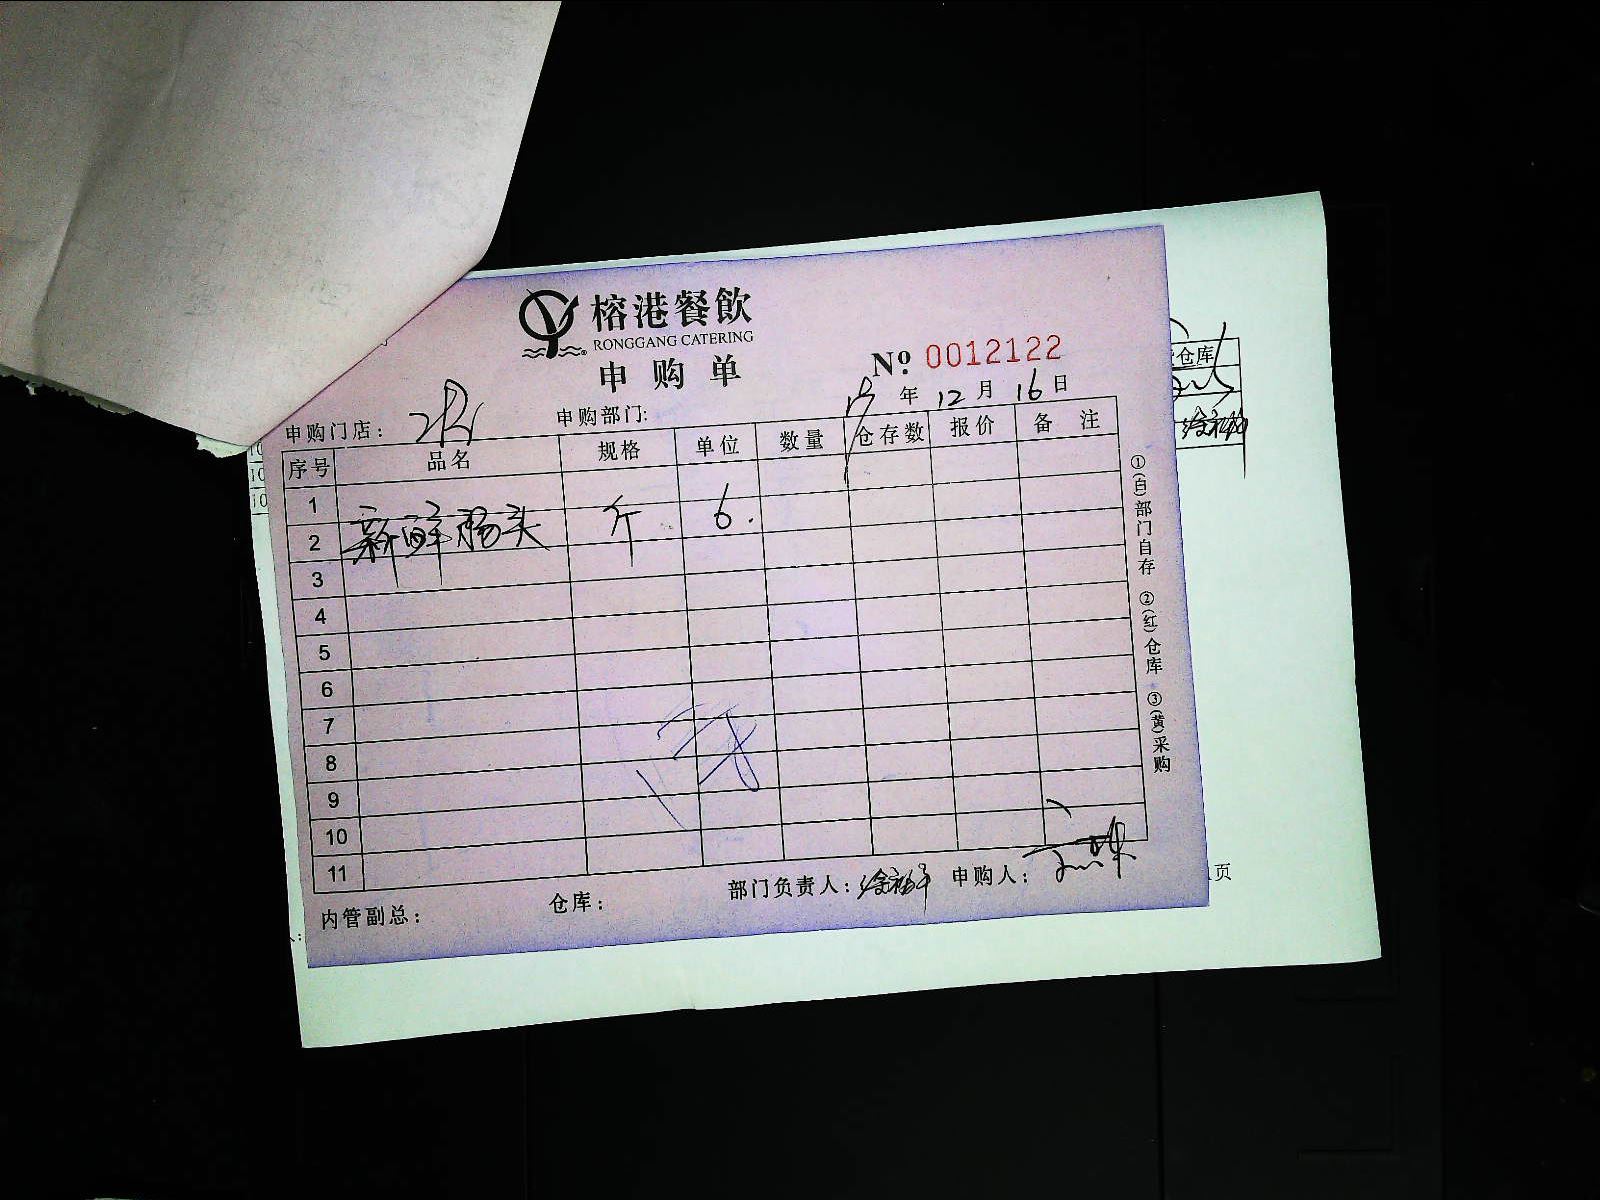 榕港餐飲
RONGGANG CATERING
申购单
№ 0012122
年 12 月 16 日
申购门店：
申购部门:
序号 品名 规格 单位 数量 仓存数 报价 备注
1
2 新鲜肠头 斤 6.
3
4
5
6
7
8
9
10
11
内管副总： 仓库： 部门负责人： 申购人：
①(白)部门自存 ②(红)仓库 ③(黄)采购
仓库
页
10
10
10